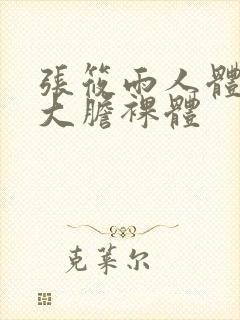 張筱雨人體
大膽裸體
克莱尔